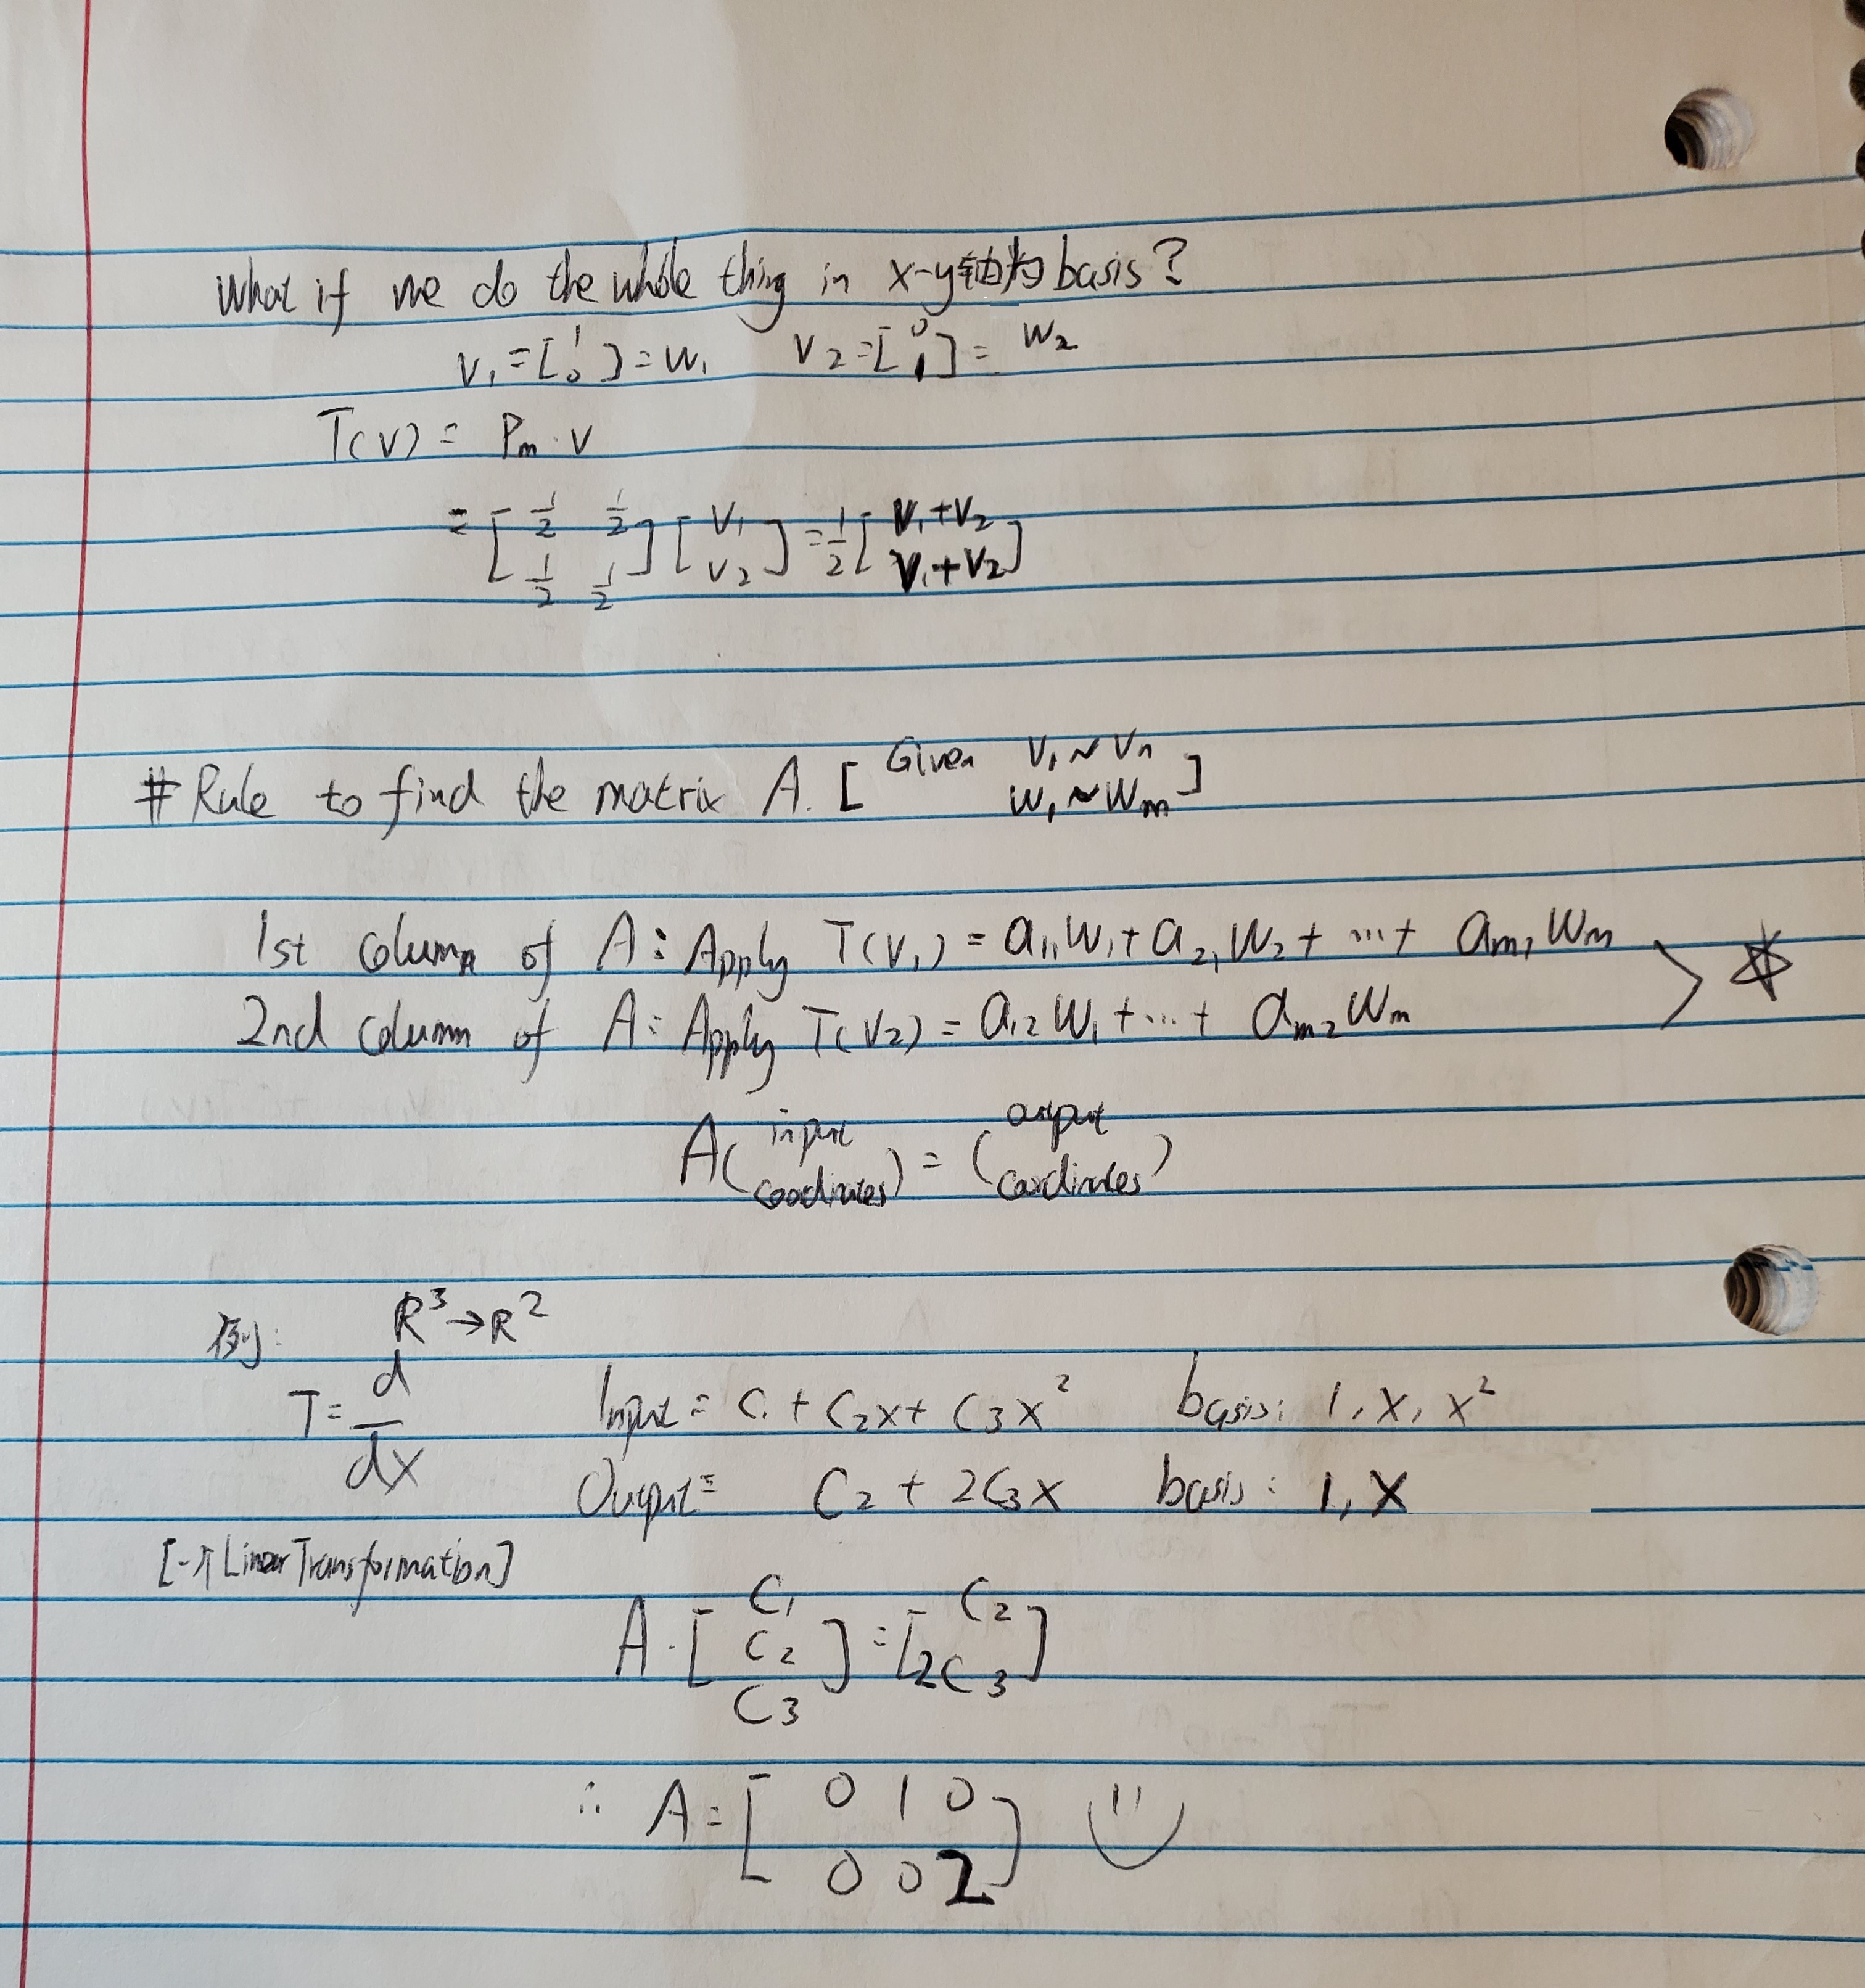 What if we do the whole thing in x-y轴为basis?
v₁=[1 0]=w₁ v₂=[0 1]=w₂
T(v) = Pm·v
= [1/2 1/2; 1/2 1/2][v₁ v₂]=1/2[v₁+v₂ v₁+v₂]
# Rule to find the matrix A. [Given v₁~vₙ w₁~wₘ]
1st column of A: Apply T(v₁) = a₁₁w₁+a₂₁w₂+ ...+ aₘ₁wₘ
2nd column of A: Apply T(v₂) = a₁₂w₁+...+ aₘ₂wₘ
A(input coordinates) = (output coordinates)
例: R³→R²
T= d/dx Input= c₁ + c₂x + c₃x² basis: 1, x, x²
Output= c₂ + 2c₃x basis: 1, x
[一个Linear Transformation]
A·[c₁ c₂ c₃]=[c₂ 2c₃]
∴ A=[0 1 0; 0 0 2]